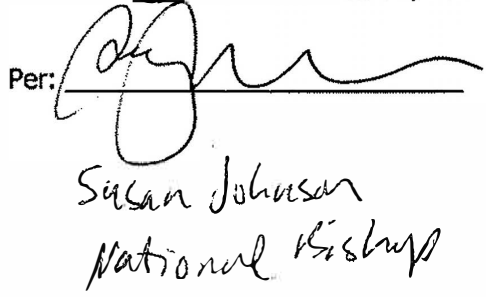 Per:
Susan Johnson
National Bishop